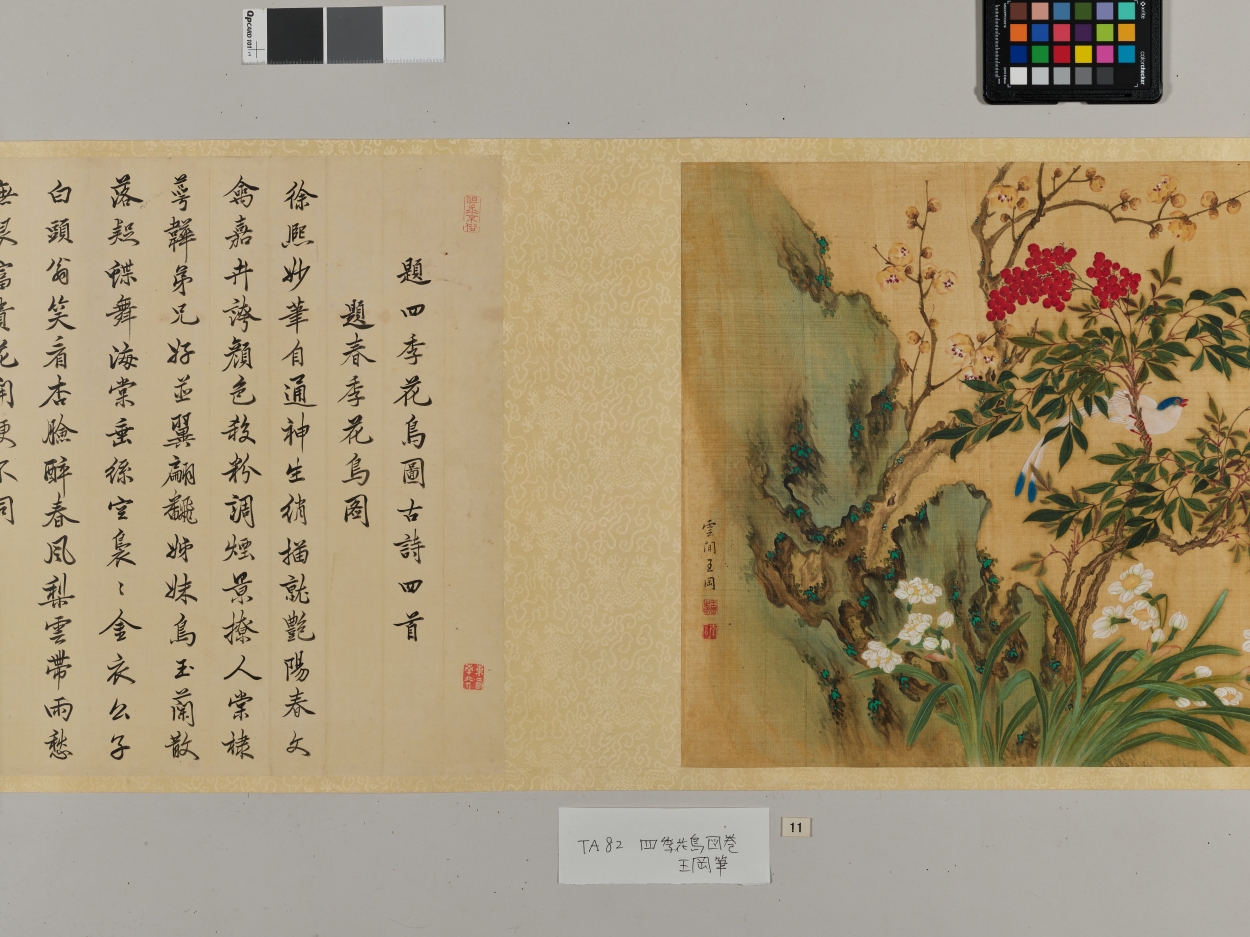 雲間王岡
題四季花鳥圖古詩四首
題春季花鳥图
徐熙妙筆自通神生綃描就艷陽春文
禽嘉卉誇顔色殺粉調煙景撩人棠棣
萼韡弟兄好並翼翩翻姊妹鳥玉蘭散
落疑蝶舞海棠垂絲空裊〻金衣公子
白頭翁笑看杏臉醉春風梨雲帶雨愁
富貴花開更不同
TA82 四季花鳥図巻
王岡筆
11
QPCARD 101
x-rite
colorchecker